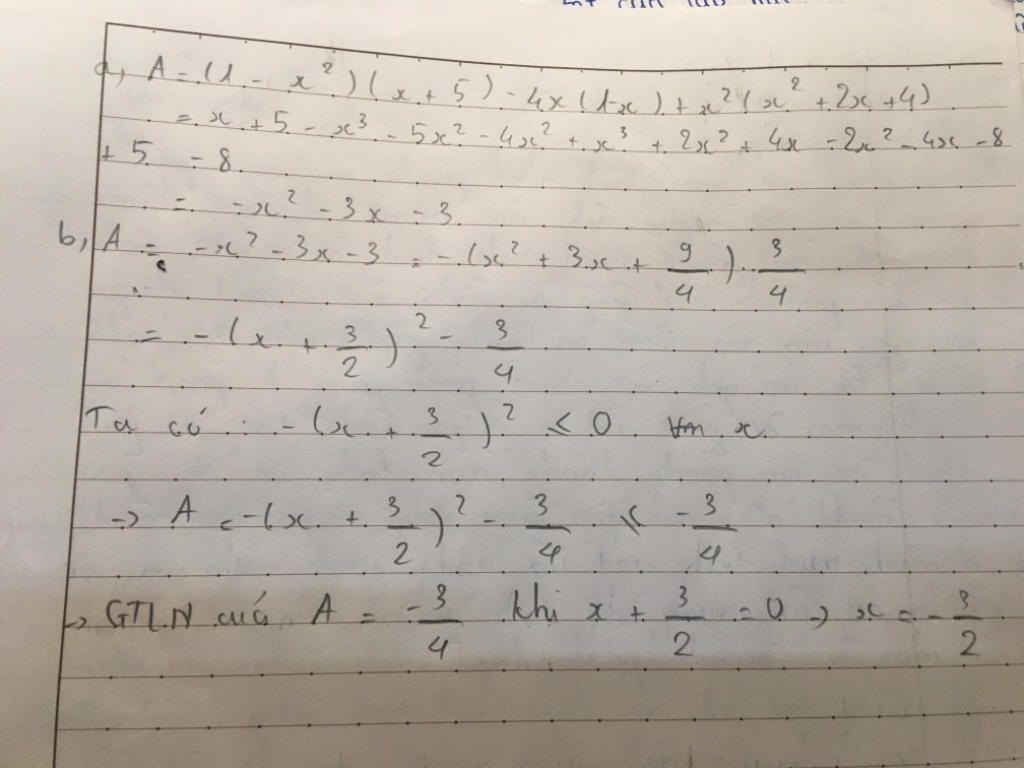 a, A = (1 - x²)(x + 5) - 4x(1-x) + x²(x² + 2x + 4)
= x + 5 - x³ - 5x² - 4x² + x³ + 2x² + 4x - 2x² - 4x - 8
+ 5 - 8
= -x² - 3x - 3
b, A = -x² - 3x - 3 = -(x² + 3x + 9/4) - 3/4
= -(x + 3/2)² - 3/4
Ta có : -(x + 3/2)² ≤ 0 x.
→ A = -(x + 3/2)² - 3/4 ≤ -3/4
→ GTLN của A = -3/4 khi x + 3/2 = 0 → x = -3/2